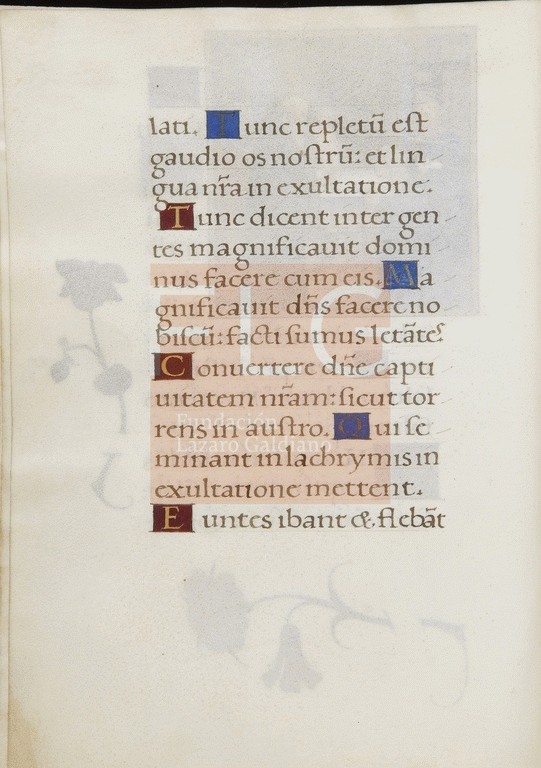 lati. Tunc repletū est
gaudio os nostrū: et lin
gua nr̄a in exultatione:
Tunc dicent inter gen
tes magnificauit domi
nus facere cum eis. Ma
gnificauit dn̄s facere no
biscū: facti sumus letātes
Conuertere dn̄e capti
uitatem nr̄am: sicut tor
rens in austro. Qui se
minant in lachrymis in
exultatione mettent.
Euntes ibant & flebāt
FLG
Fundación
Lázaro Galdiano